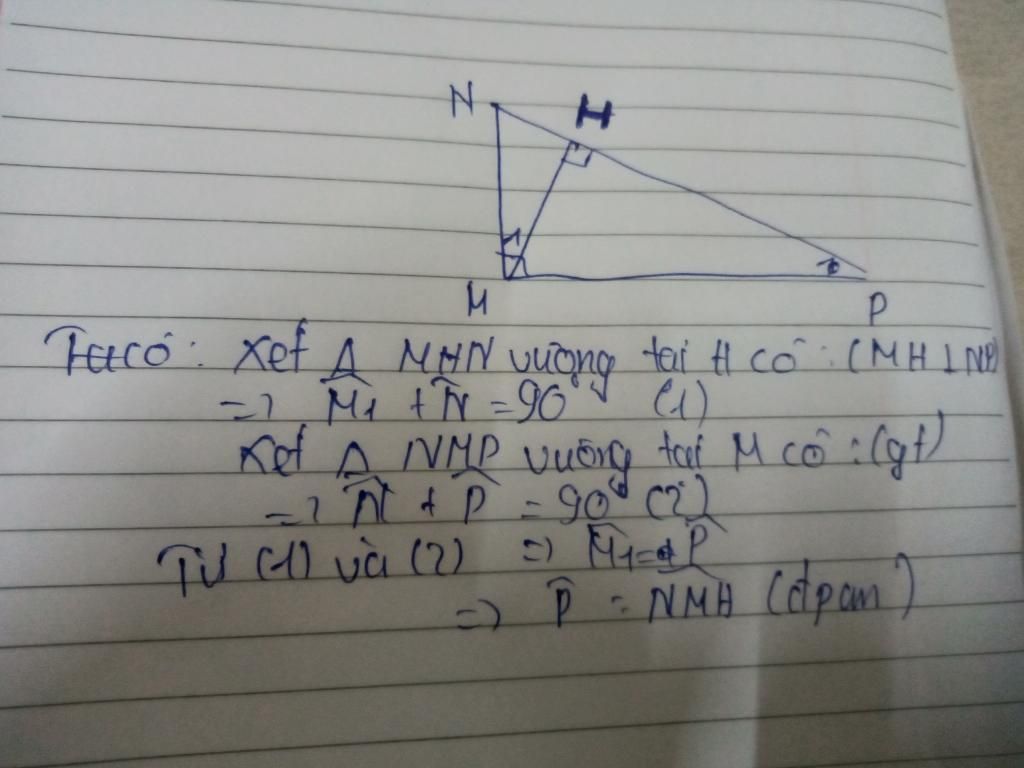 N
H
1
M
P
Ta có: Xét Δ MHN vuông tại H có: (MH⊥NP)
=> M̂₁ + N̂ = 90° (1)
Xét Δ NMP vuông tại M có: (gt)
=> N̂ + P̂ = 90° (2)
Từ (1) và (2) => M̂₁ = P̂
=> P̂ = NMH (đpcm)